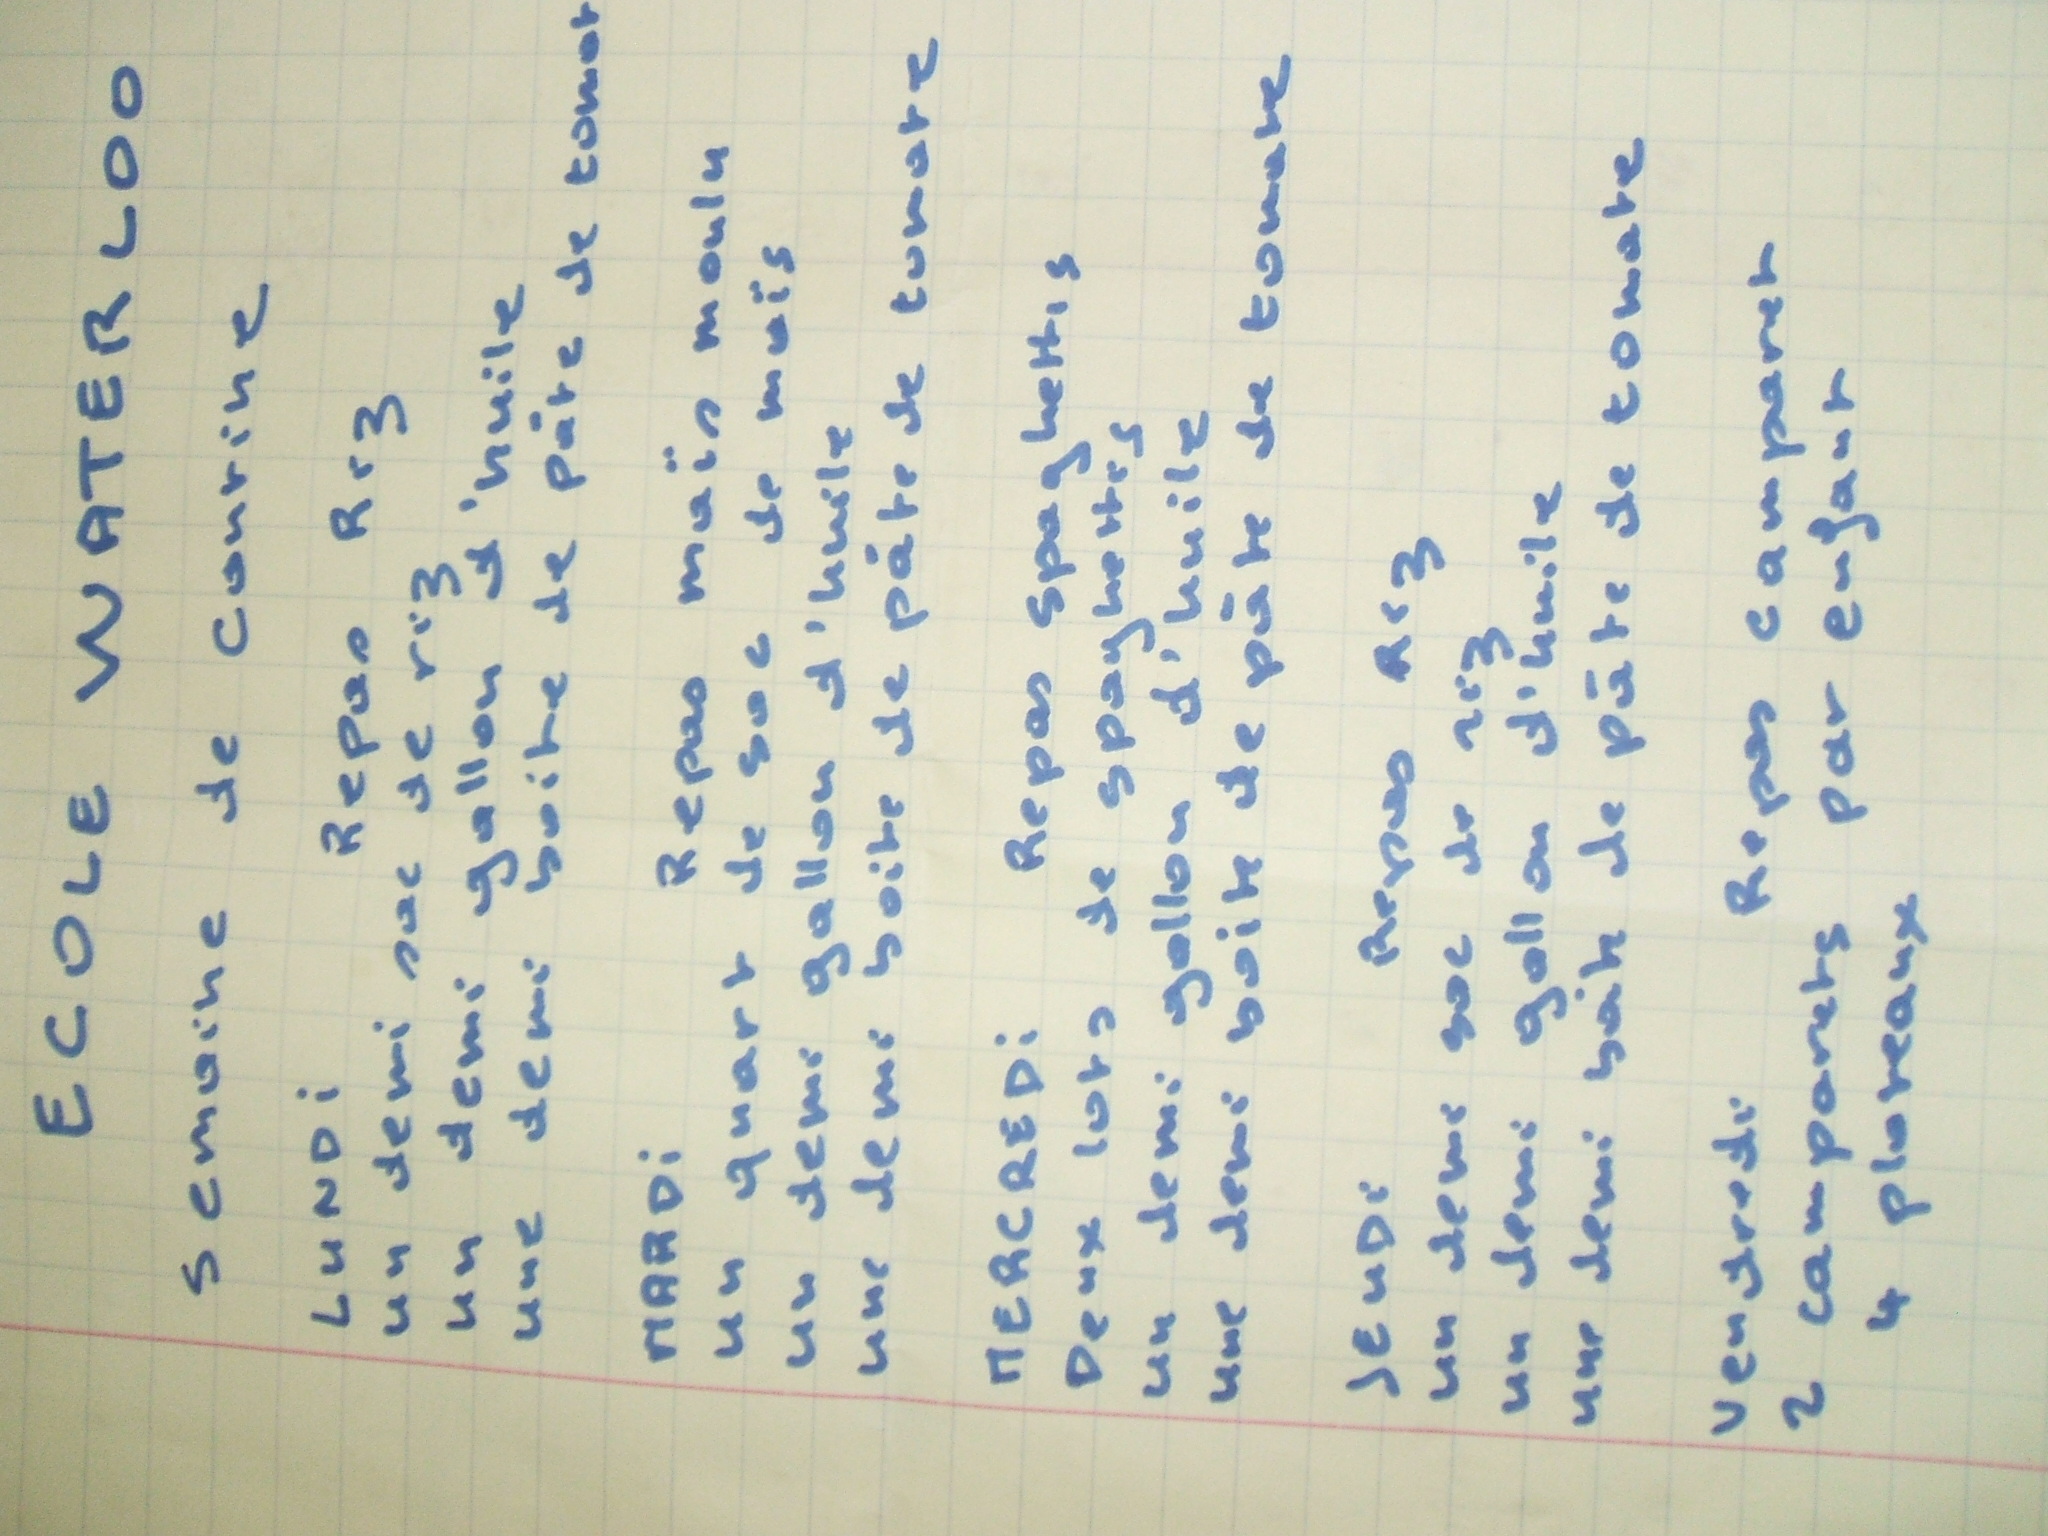 ECOLE WATERLOO
semaine de cantine
LUNDI Repas Riz
un demi sac de riz
un demi gallon d'huile
une demi boite de pâte de tomat
MARDI Repas maïs moulu
un quart de sac de maïs
un demi gallon d'huile
une demi boite de pâte de tomate
MERCREDI Repas spaghettis
Deux lots de spaghettis
un demi gallon d'huile
une demi boite de pâte de tomate
JEUDI Repas Riz
un demi sac de riz
un demi gallon d'huile
une demi boite de pâte de tomate
Vendredi Repas camparet
2 camparets par enfant
4 plateaux